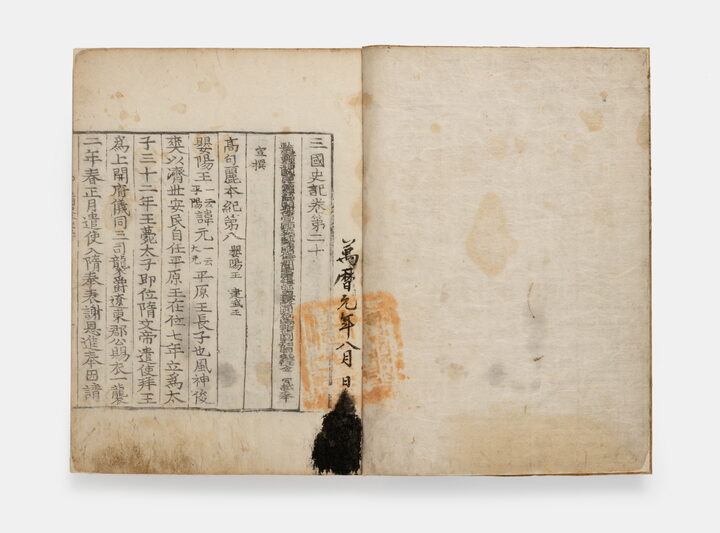 萬曆元年八月 日
三國史記卷第二十
奉
宣撰
高句麗本紀第八 嬰陽王 建武王
嬰陽王一云平陽諱元一云大元平原王長子也風神俊
爽以濟世安民自任平原王在位七年立爲太
子三十二年王薨太子即位隋文帝遣使拜王
爲上開府儀同三司襲爵遼東郡公賜衣一襲
二年春正月遣使入隋奉表謝恩進奉因請